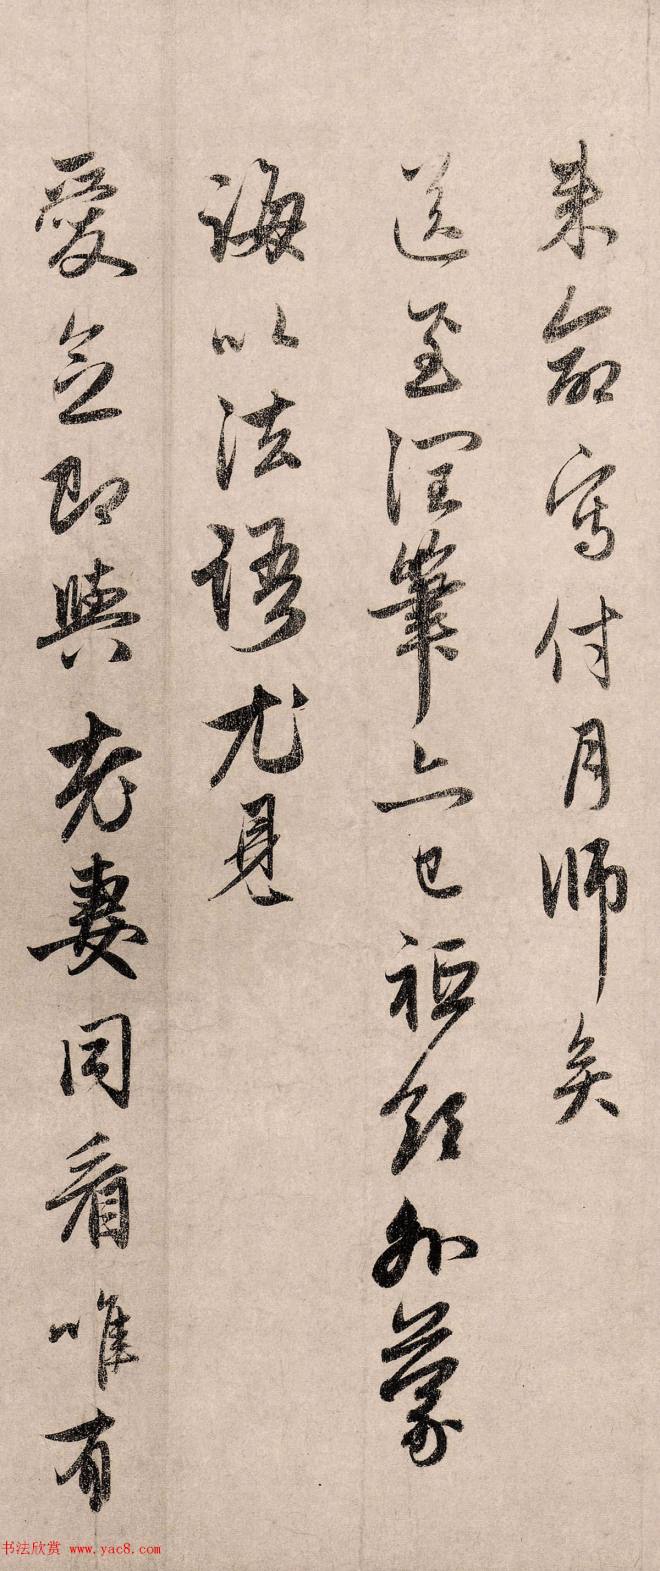 来命寫付月师矣
送至润筆亦已祗领外蒙
誨以法語尤見
愛念即與老妻同看唯有
书法欣赏 www.yac8.com